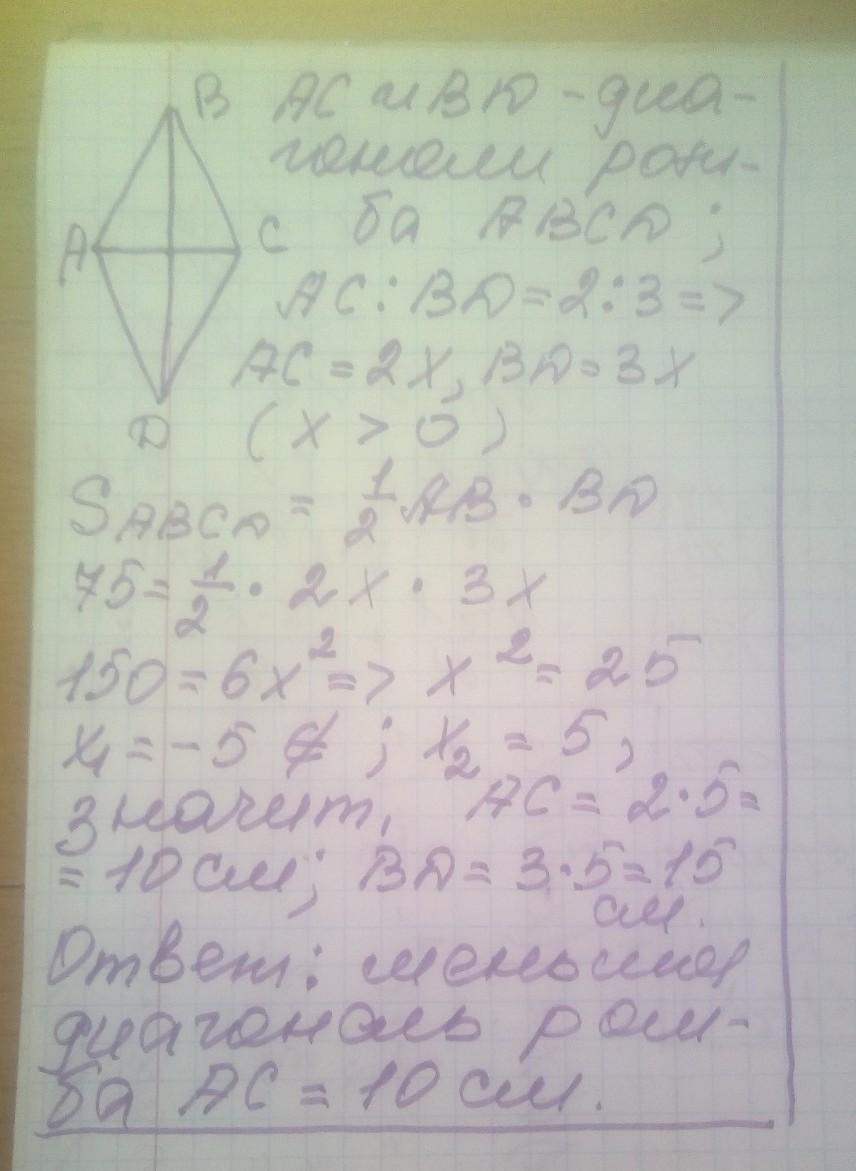 B AC и BD - диа-
гонали ром-
A C ба ABCD;
AC:BD=2:3=>
AC=2x, BD=3x
D (x > 0)
S ABCD = 1/2 AB · BD
75 = 1/2 · 2x · 3x
150 = 6x² => x² = 25
x₁ = -5 ∉ ; x₂ = 5,
значит, AC = 2·5=
= 10 см; BD = 3·5=15
см.
Ответ: меньшая
диагональ ром-
ба AC = 10 см.